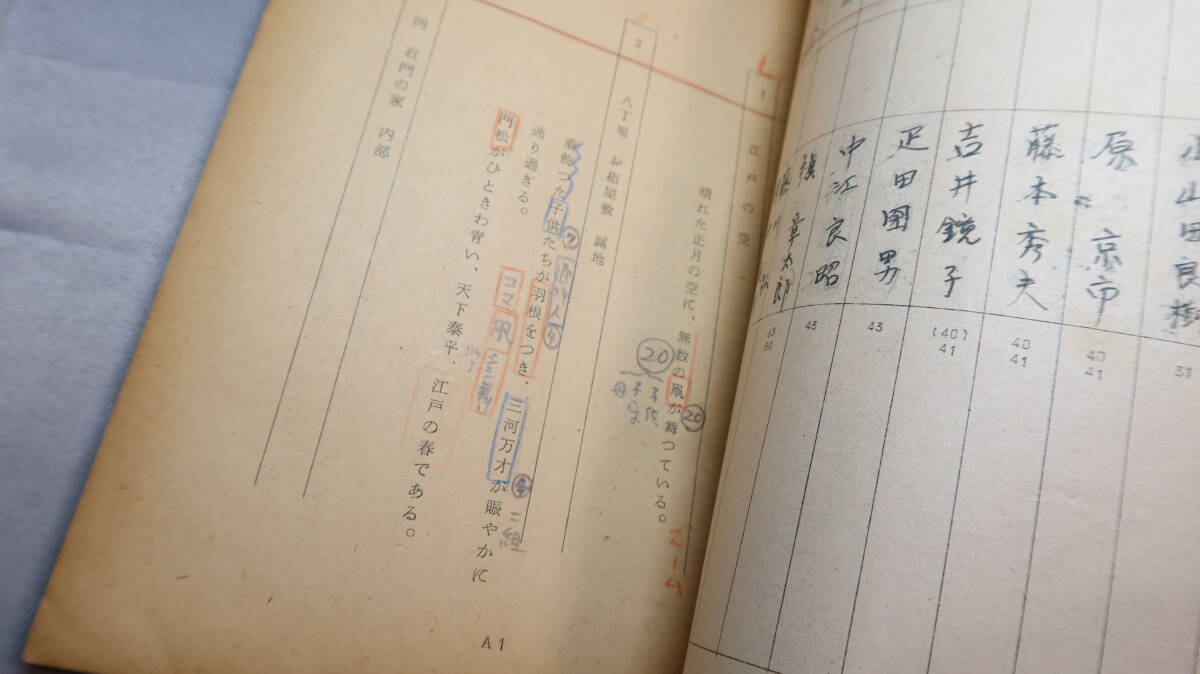 小山田良樹
31
原 京市
40
41
藤本秀夫
40
41
吉井鏡子
(40)
41
疋田圀男
43
中江良昭
43
章太郎
43
1 江戸の空
晴れた正月の空に、無数の凧が舞つている。
⑳
⑳
ズーム
2 八丁堀 お組屋敷 露地
着飾つた子供たちが羽根をつき、三河万才が賑やかに
通り過ぎる。
二組
コマ
門松がひときわ青い、天下泰平、江戸の春である。
同 右門の家 内部
A1